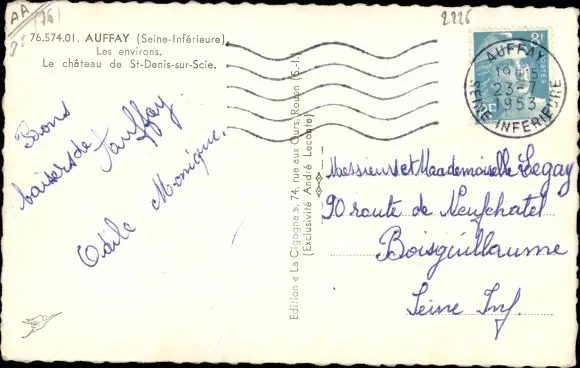 AA
(76)
2226
76.574.01. AUFFAY (Seine-Inférieure)
Les environs.
Le château de St-Denis-sur-Scie.
Bons
baisers de Sauffay.
Odile Monique.
Edition « La Cigogne », 74, rue aux Ours, Rouen (S.-I.)
(Exclusivité André Lecomte)
AUFFAY
23-7
1953
SEINE INFERIEURE
Messieurs et Maademoiselle Legay
90 route de Neufchatel
Boisguillaume
Seine Inf.